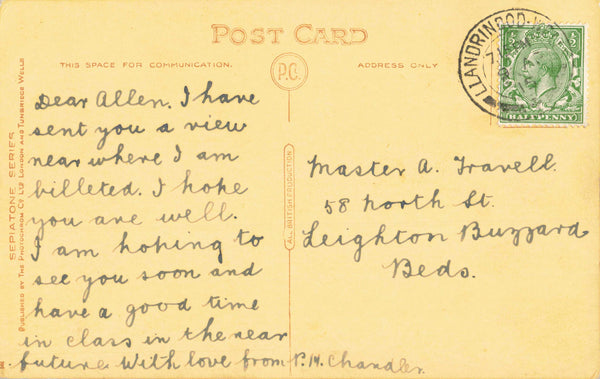 POST CARD
THIS SPACE FOR COMMUNICATION.
P.C.
ADDRESS ONLY
LLANDRINDOD
HALFPENNY
SEPIATONE SERIES
PUBLISHED BY THE PHOTOCHROM CO LTD LONDON AND TUNBRIDGE WELLS
ALL BRITISH PRODUCTION
Dear Allen. I have
sent you a view
near where I am
billeted. I hope
you are well.
I am hoping to
see you soon and
have a good time
in class in the near
future. With love from P.M. Chandler.
Master A. Travell.
58 North St.
Leighton Buzzard
Beds.